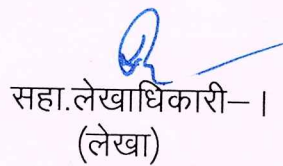 सहा.लेखाधिकारी–।
(लेखा)